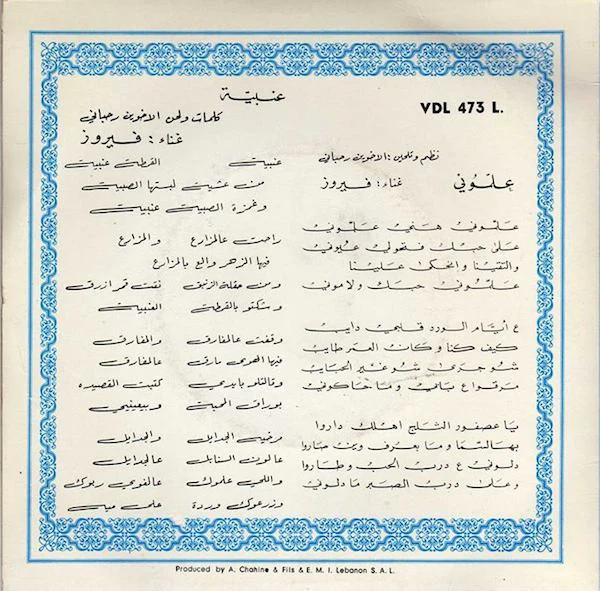 VDL 473 L.
نظم وتلحين: الاخوين رحباني
علّموني غناء: فيروز
علّموني هنّي علّموني
على حبّك فتحولي عيوني
والتقينا وانحكى علينا
علّموني حبّك ولاموني
ع أيّام الورد قلبي دايب
كيف كنا وكان العمر طايب
شو جرى شو غيّر الحبايب
مرقوا ع بابي وما حاكوني
يا عصفور الثلج أهلك داروا
بهالسّما وما بعرف وين صاروا
دلّوني ع درب الحب وطاروا
وعلى درب الصبر ما دلّوني
عنبيّة
كلمات ولحن الاخوين رحباني
غناء: فيروز
عنبيّة القطّة عنبيّة
من عشيّة لبستها الصبيّة
وغمزة الصبيّة عنبيّة
راحت عالمزارع والمزارع
فيها الزهر والع بالمزارع
ومن حقلة الزنبق نقّت قمر ازرق
وشكّتو بالقطّة العنبيّة
وقفت عالمفارق والمفارق
فيها الهوى مارق عالمفارق
وقالتلو بايدي كتبت القصيده
بوراق الحميّة
مرخيّة الجدايل والجدايل
عالون السنابل عالجدايل
واللي علّموك عالغوى ربّوك
وزرعوك وردة على ميّة
Produced by A. Chahine & Fils & E. M. I. Lebanon S. A. L.